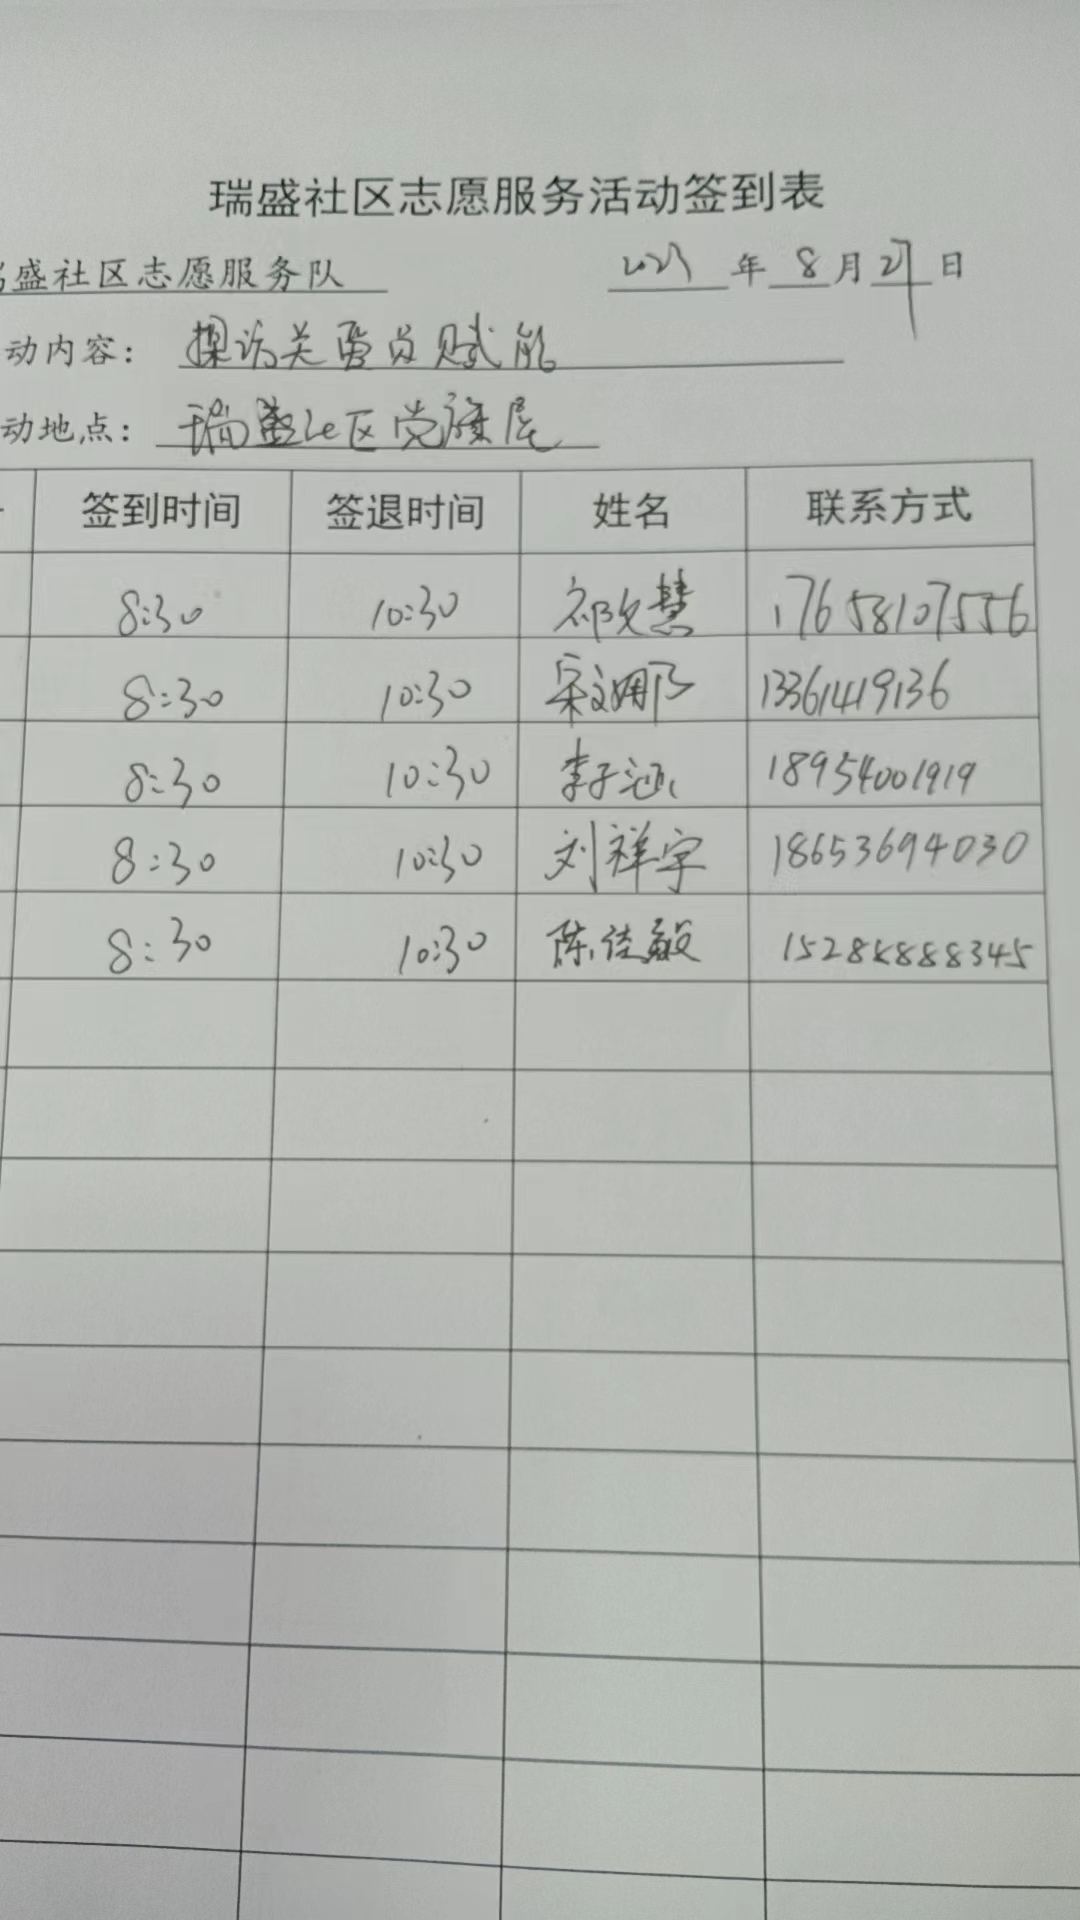 瑞盛社区志愿服务活动签到表
盛社区志愿服务队 年 8 月 27 日
动内容: 探访关爱员赋能
动地点: 瑞盛社区党旗屋
签到时间 签退时间 姓名 联系方式
8:30 10:30 祁文慧 17658107556
8:30 10:30 宋文娜 13361419136
8:30 10:30 李子涵 18954001919
8:30 10:30 刘祥宇 18653694030
8:30 10:30 陈佳毅 15288888345